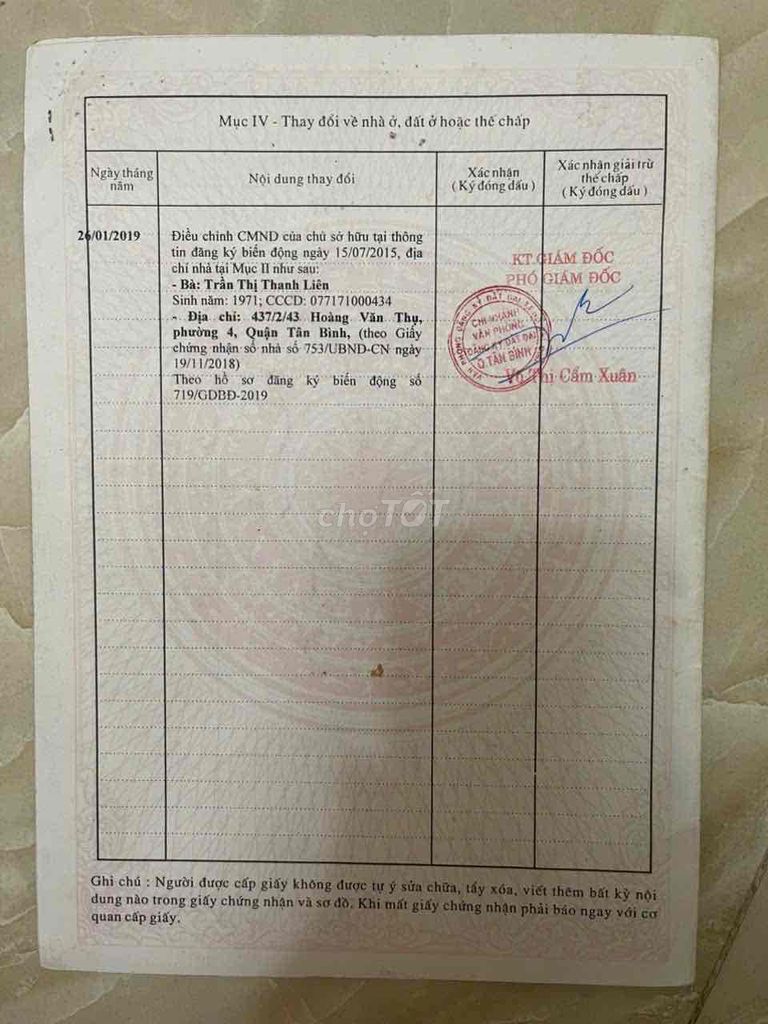 Mục IV - Thay đổi về nhà ở, đất ở hoặc thế chấp
Ngày tháng năm
Nội dung thay đổi
Xác nhận
(Ký đóng dấu)
Xác nhận giải trừ
thế chấp
(Ký đóng dấu)
26/01/2019
Điều chỉnh CMND của chủ sở hữu tại thông
tin đăng ký biến động ngày 15/07/2015, địa
chỉ nhà tại Mục II như sau:
- Bà: Trần Thị Thanh Liên
Sinh năm: 1971; CCCD: 077171000434
- Địa chỉ: 437/2/43 Hoàng Văn Thụ,
phường 4, Quận Tân Bình, (theo Giấy
chứng nhận số nhà số 753/UBND-CN ngày
19/11/2018)
Theo hồ sơ đăng ký biến động số
719/GDBĐ-2019
KT GIÁM ĐỐC
PHÓ GIÁM ĐỐC
CHI NHÁNH
VĂN PHÒNG
ĐĂNG KÝ ĐẤT ĐAI
Q.TÂN BÌNH
Võ Thị Cẩm Xuân
chợTỐT
Ghi chú : Người được cấp giấy không được tự ý sửa chữa, tẩy xóa, viết thêm bất kỳ nội
dung nào trong giấy chứng nhận và sơ đồ. Khi mất giấy chứng nhận phải báo ngay với cơ
quan cấp giấy.